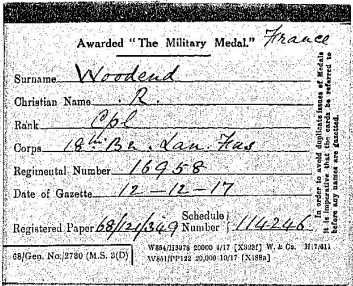 Awarded "The Military Medal." France
Surname Woodend
Christian Name R.
Rank Cpl
Corps 18th Bn. Lan. Fus
Regimental Number 16958
Date of Gazette 12-12-17
Registered Paper 68/121/349 Schedule Number 114246
68/Gen. No./2780 (M.S. 3(D)) W854/H3078 20000 4/17 W. & Co.
20,000 10/17
In order to avoid duplicate issues of Medals
it is imperative that the cards be referred to
before any medals are granted.